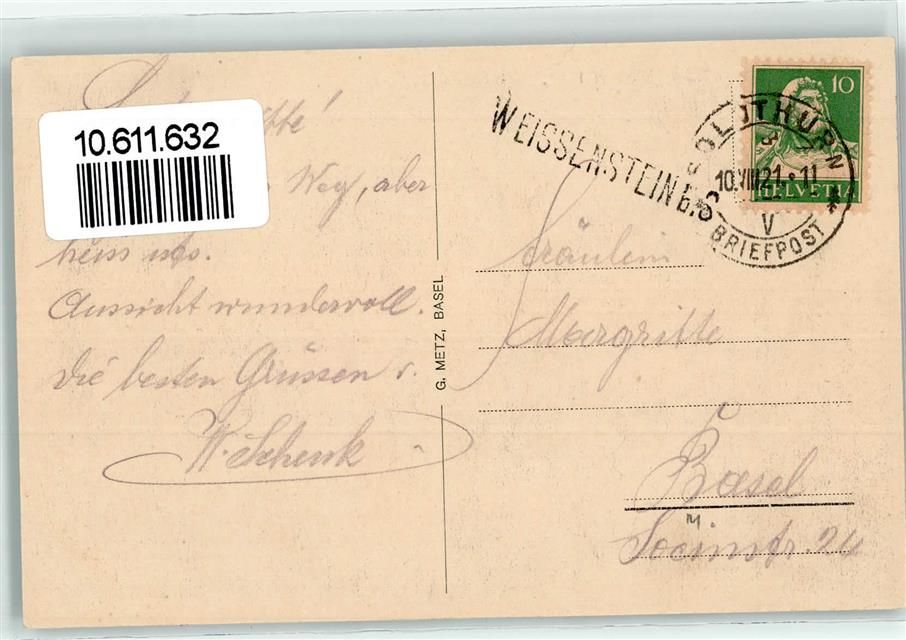 10.611.632
Weg, aber
heiss ists.
Aussicht wundervoll.
Die besten Grüssen v.
W. Schenk
G. METZ, BASEL
WEISSENSTEIN b. S
10
HELVETIA
SOLOTHURN
10.VIII.21.-11
V
BRIEFPOST
Fräulein
Margritte
Basel
Socinstr. 24